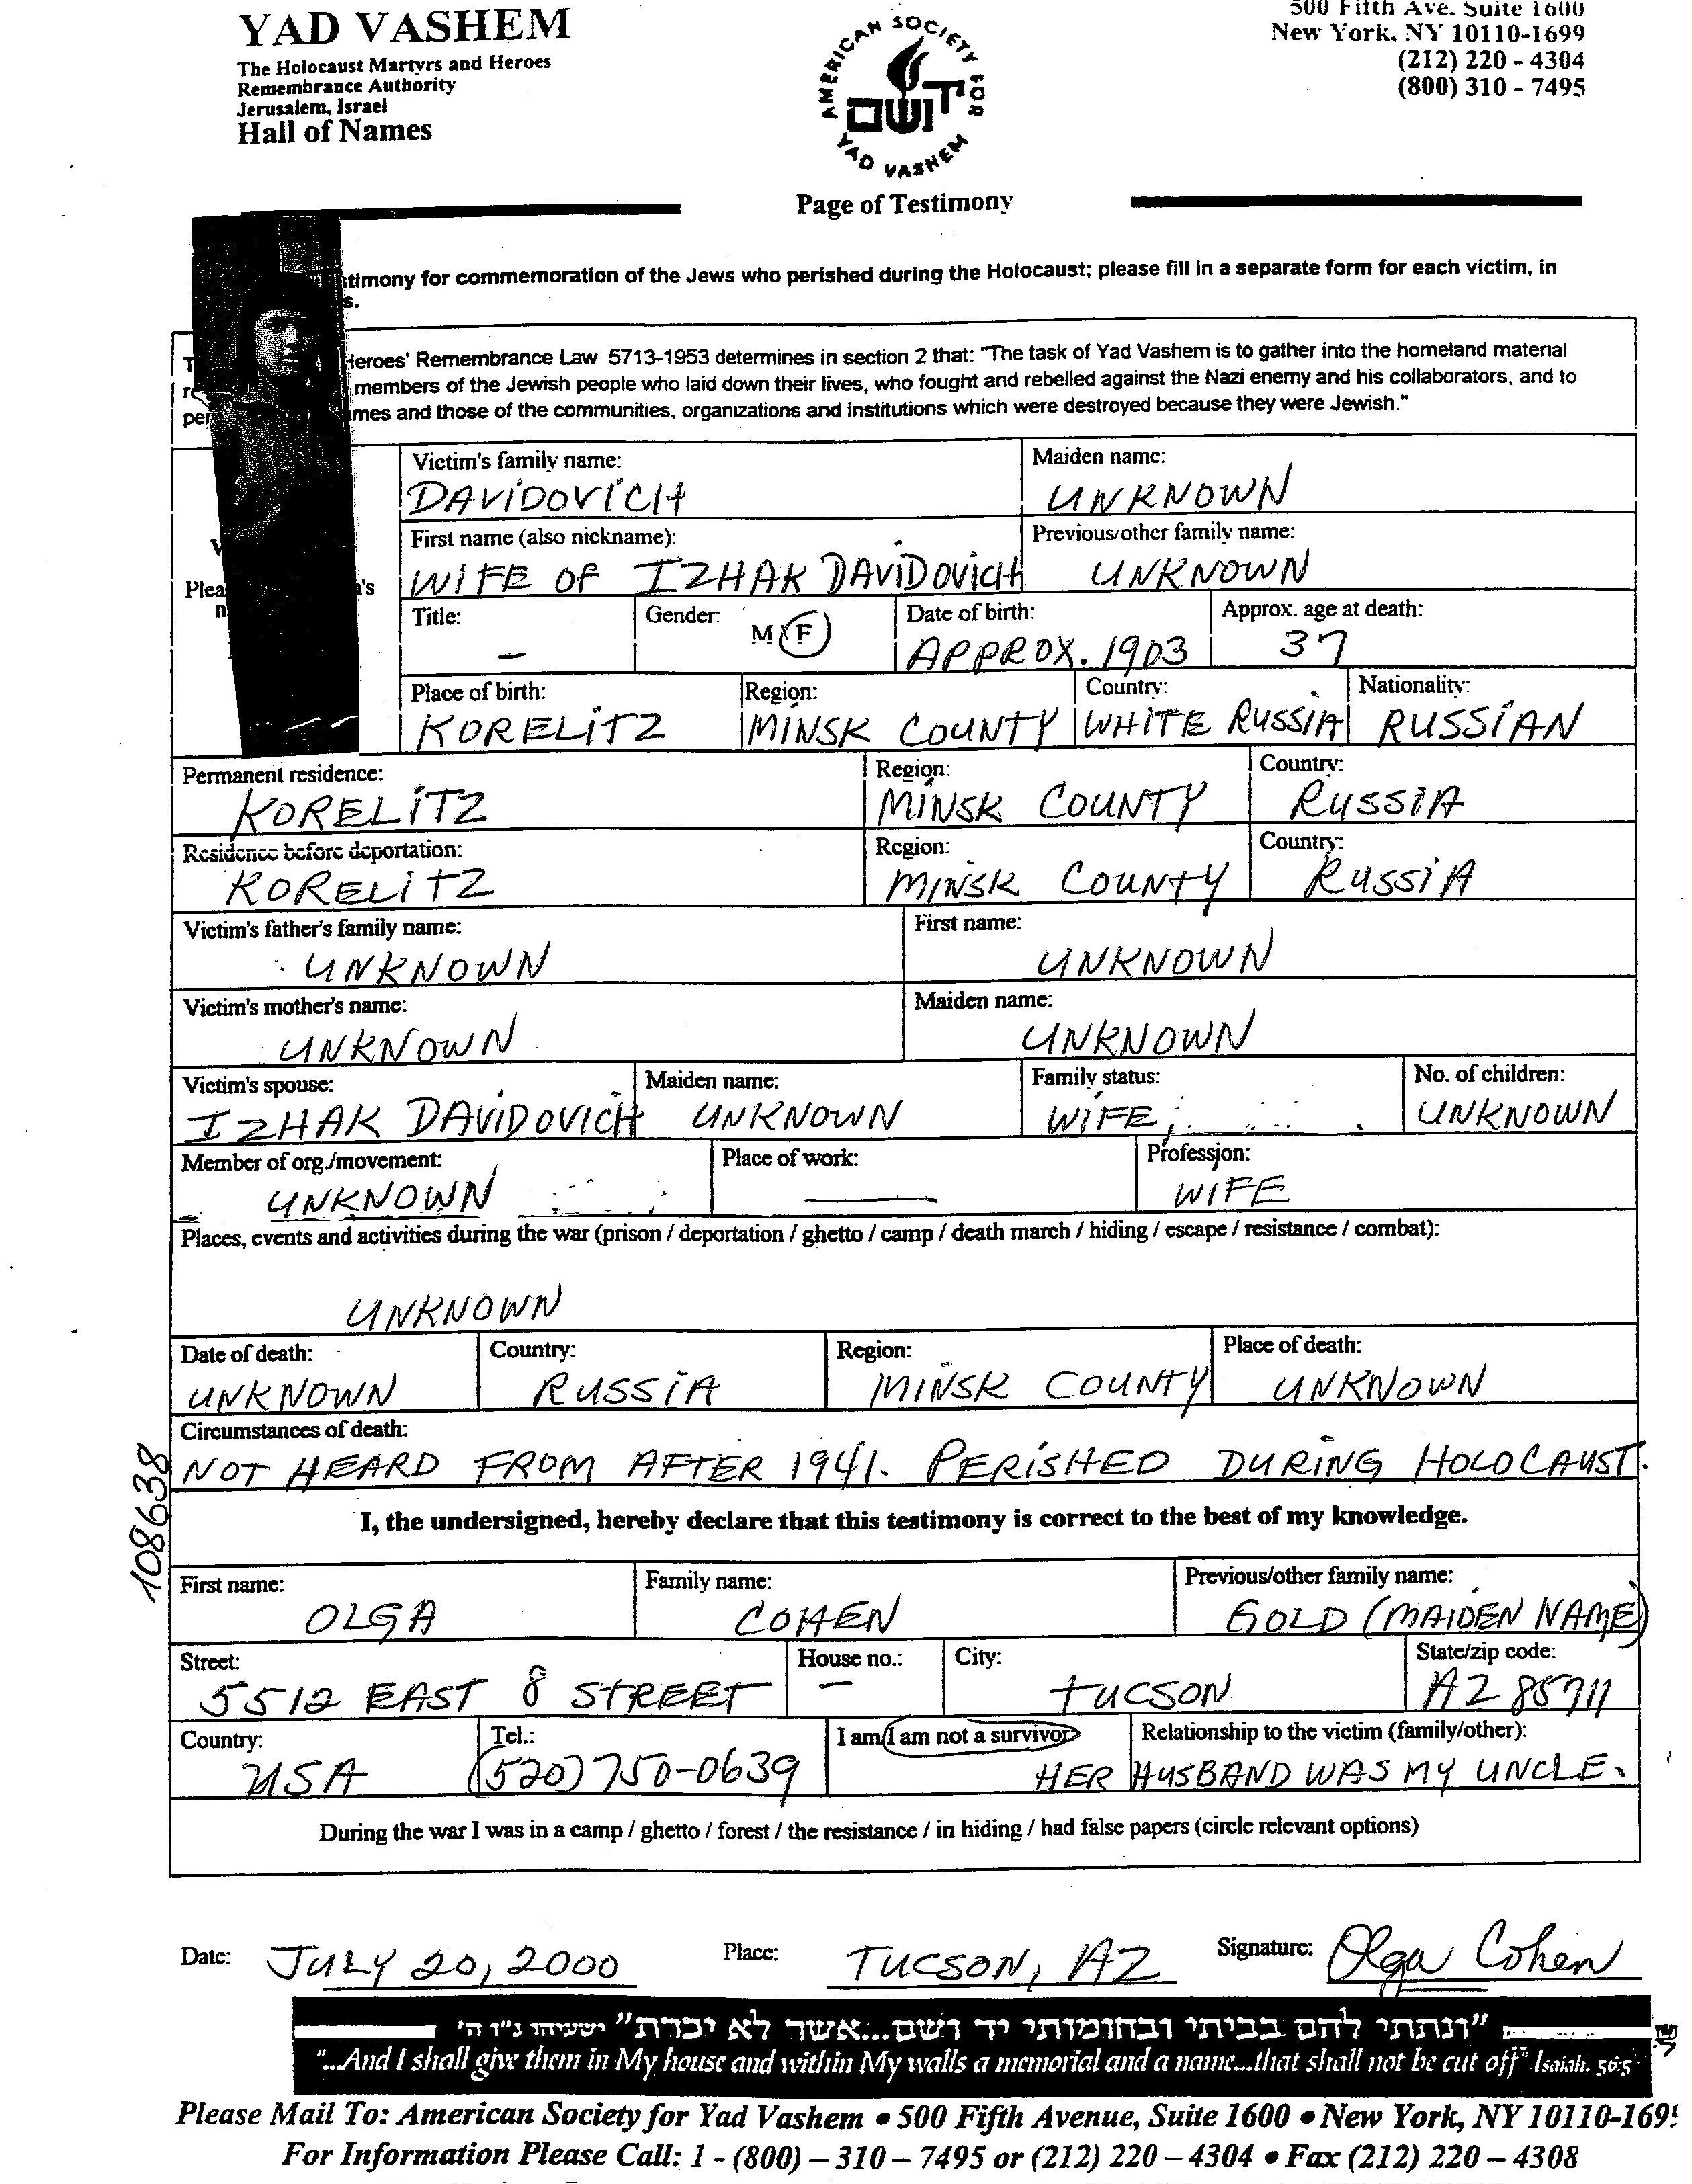 YAD VASHEM
The Holocaust Martyrs and Heroes
Remembrance Authority
Jerusalem, Israel
Hall of Names
AMERICAN SOCIETY FOR
YAD VASHEM
יד ושם
500 Fifth Ave. Suite 1600
New York. NY 10110-1699
(212) 220 - 4304
(800) 310 - 7495
Page of Testimony
timony for commemoration of the Jews who perished during the Holocaust; please fill in a separate form for each victim, in
s.
Heroes' Remembrance Law 5713-1953 determines in section 2 that: "The task of Yad Vashem is to gather into the homeland material
members of the Jewish people who laid down their lives, who fought and rebelled against the Nazi enemy and his collaborators, and to
mes and those of the communities, organizations and institutions which were destroyed because they were Jewish."
Victim's family name: Maiden name:
DAVIDOVICH UNKNOWN
First name (also nickname): Previous/other family name:
WIFE OF IZHAK DAVIDOVICH UNKNOWN
Title: Gender: M F Date of birth: Approx. age at death:
– APPROX. 1903 37
Place of birth: Region: Country: Nationality:
KORELITZ MINSK COUNTY WHITE RUSSIA RUSSIAN
Permanent residence: Region: Country:
KORELITZ MINSK COUNTY RUSSIA
Residence before deportation: Region: Country:
KORELITZ MINSK COUNTY RUSSIA
Victim's father's family name: First name:
UNKNOWN UNKNOWN
Victim's mother's name: Maiden name:
UNKNOWN UNKNOWN
Victim's spouse: Maiden name: Family status: No. of children:
IZHAK DAVIDOVICH UNKNOWN WIFE UNKNOWN
Member of org./movement: Place of work: Profession:
UNKNOWN — WIFE
Places, events and activities during the war (prison / deportation / ghetto / camp / death march / hiding / escape / resistance / combat):
UNKNOWN
Date of death: Country: Region: Place of death:
UNKNOWN RUSSIA MINSK COUNTY UNKNOWN
Circumstances of death:
NOT HEARD FROM AFTER 1941. PERISHED DURING HOLOCAUST.
108638
I, the undersigned, hereby declare that this testimony is correct to the best of my knowledge.
First name: Family name: Previous/other family name:
OLGA COHEN GOLD (MAIDEN NAME)
Street: House no.: City: State/zip code:
5512 EAST 8 STREET – TUCSON AZ 85711
Country: Tel.: I am/I am not a survivor Relationship to the victim (family/other):
USA (520) 750-0639 HER HUSBAND WAS MY UNCLE.
During the war I was in a camp / ghetto / forest / the resistance / in hiding / had false papers (circle relevant options)
Date: JULY 20, 2000 Place: TUCSON, AZ Signature: Olga Cohen
"ונתתי להם בביתי ובחומותי יד ושם...אשר לא יכרת" ישעיהו נ"ו ה'
"...And I shall give them in My house and within My walls a memorial and a name...that shall not be cut off" Isaiah. 56:5
Please Mail To: American Society for Yad Vashem • 500 Fifth Avenue, Suite 1600 • New York, NY 10110-169
For Information Please Call: 1 - (800) – 310 – 7495 or (212) 220 – 4304 • Fax (212) 220 – 4308